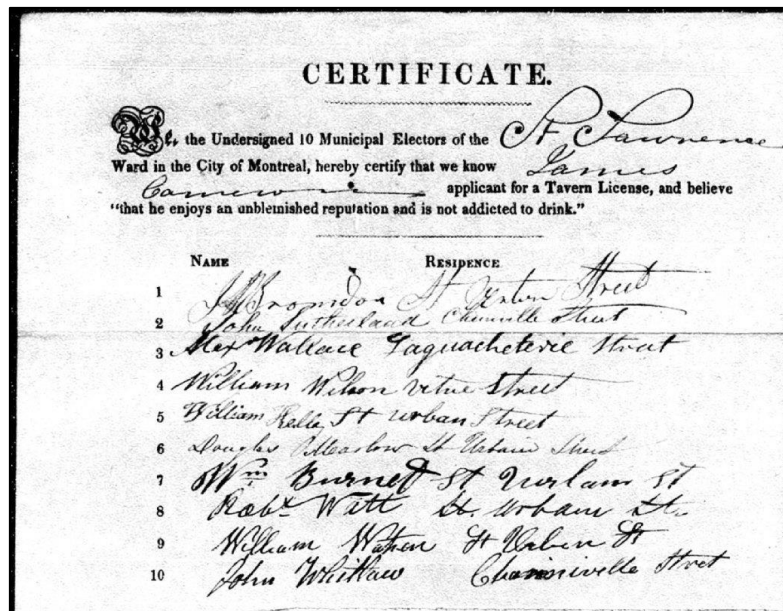 CERTIFICATE.
We, the Undersigned 10 Municipal Electors of the St Lawrence
Ward in the City of Montreal, hereby certify that we know James
Cameron applicant for a Tavern License, and believe
"that he enjoys an unblemished reputation and is not addicted to drink."
NAME RESIDENCE
1 St Urbin Street
2 John Sutherland Chenville Street
3 Alex Wallace Laguacheterie Street
4 William Wilson Vitue Street
5 William Kelly St Urban Street
6 Douglas St Urbain Street
7 Wm Burnett St St
8 Robt Watt St. Urbain St.
9 William Watson St Urben St
10 John Whitlaw Street